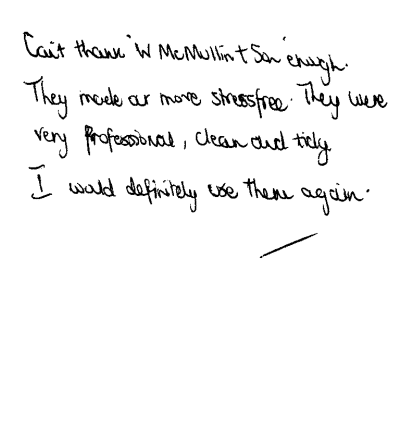 Can't thank 'W McMullin + Son' enough.
They made our move stressfree. They were
very professional, clean and tidy
I would definitely use them again.